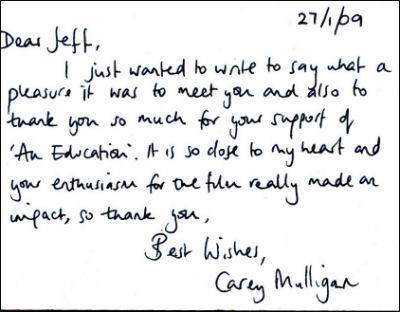 27/1/09
Dear Jeff,
I just wanted to write to say what a
pleasure it was to meet you and also to
thank you so much for your support of
'An Education'. It is so close to my heart and
your enthusiasm for the film really made an
impact, so thank you,
Best Wishes,
Carey Mulligan